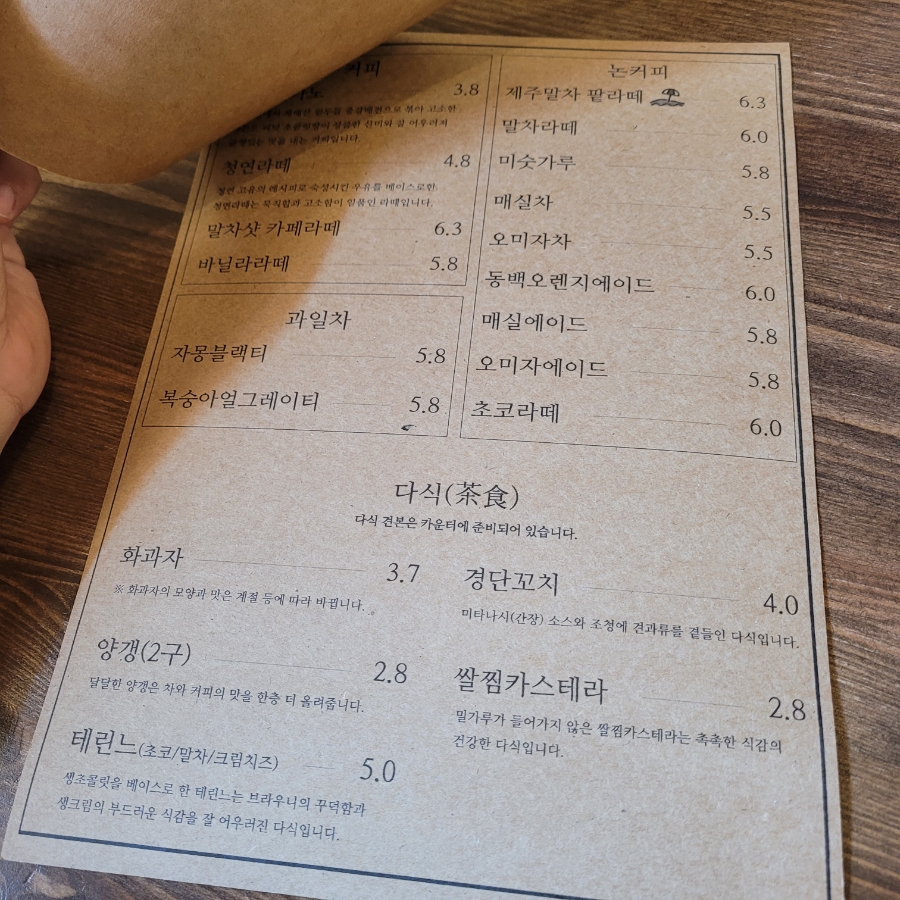 커피
3.8
맛을 내는 커피입니다.
청연라떼 4.8
청연 고유의 레시피로 숙성시킨 우유를 베이스로한
청연라떼는 묵직함과 고소함이 일품인 라떼입니다.
말차샷 카페라떼 6.3
바닐라라떼 5.8
과일차
자몽블랙티 5.8
복숭아얼그레이티 5.8
논커피
제주말차 팥라떼 6.3
말차라떼 6.0
미숫가루 5.8
매실차 5.5
오미자차 5.5
동백오렌지에이드 6.0
매실에이드 5.8
오미자에이드 5.8
초코라떼 6.0
다식(茶食)
다식 견본은 카운터에 준비되어 있습니다.
화과자 3.7
※ 화과자의 모양과 맛은 계절 등에 따라 바뀝니다.
양갱(2구) 2.8
달달한 양갱은 차와 커피의 맛을 한층 더 올려줍니다.
테린느(초코/말차/크림치즈) 5.0
생초콜릿을 베이스로 한 테린느는 브라우니의 꾸덕함과
생크림의 부드러운 식감을 잘 어우러진 다식입니다.
경단꼬치 4.0
미타나시(간장) 소스와 조청에 견과류를 곁들인 다식입니다.
쌀찜카스테라 2.8
밀가루가 들어가지 않은 쌀찜카스테라는 촉촉한 식감의
건강한 다식입니다.